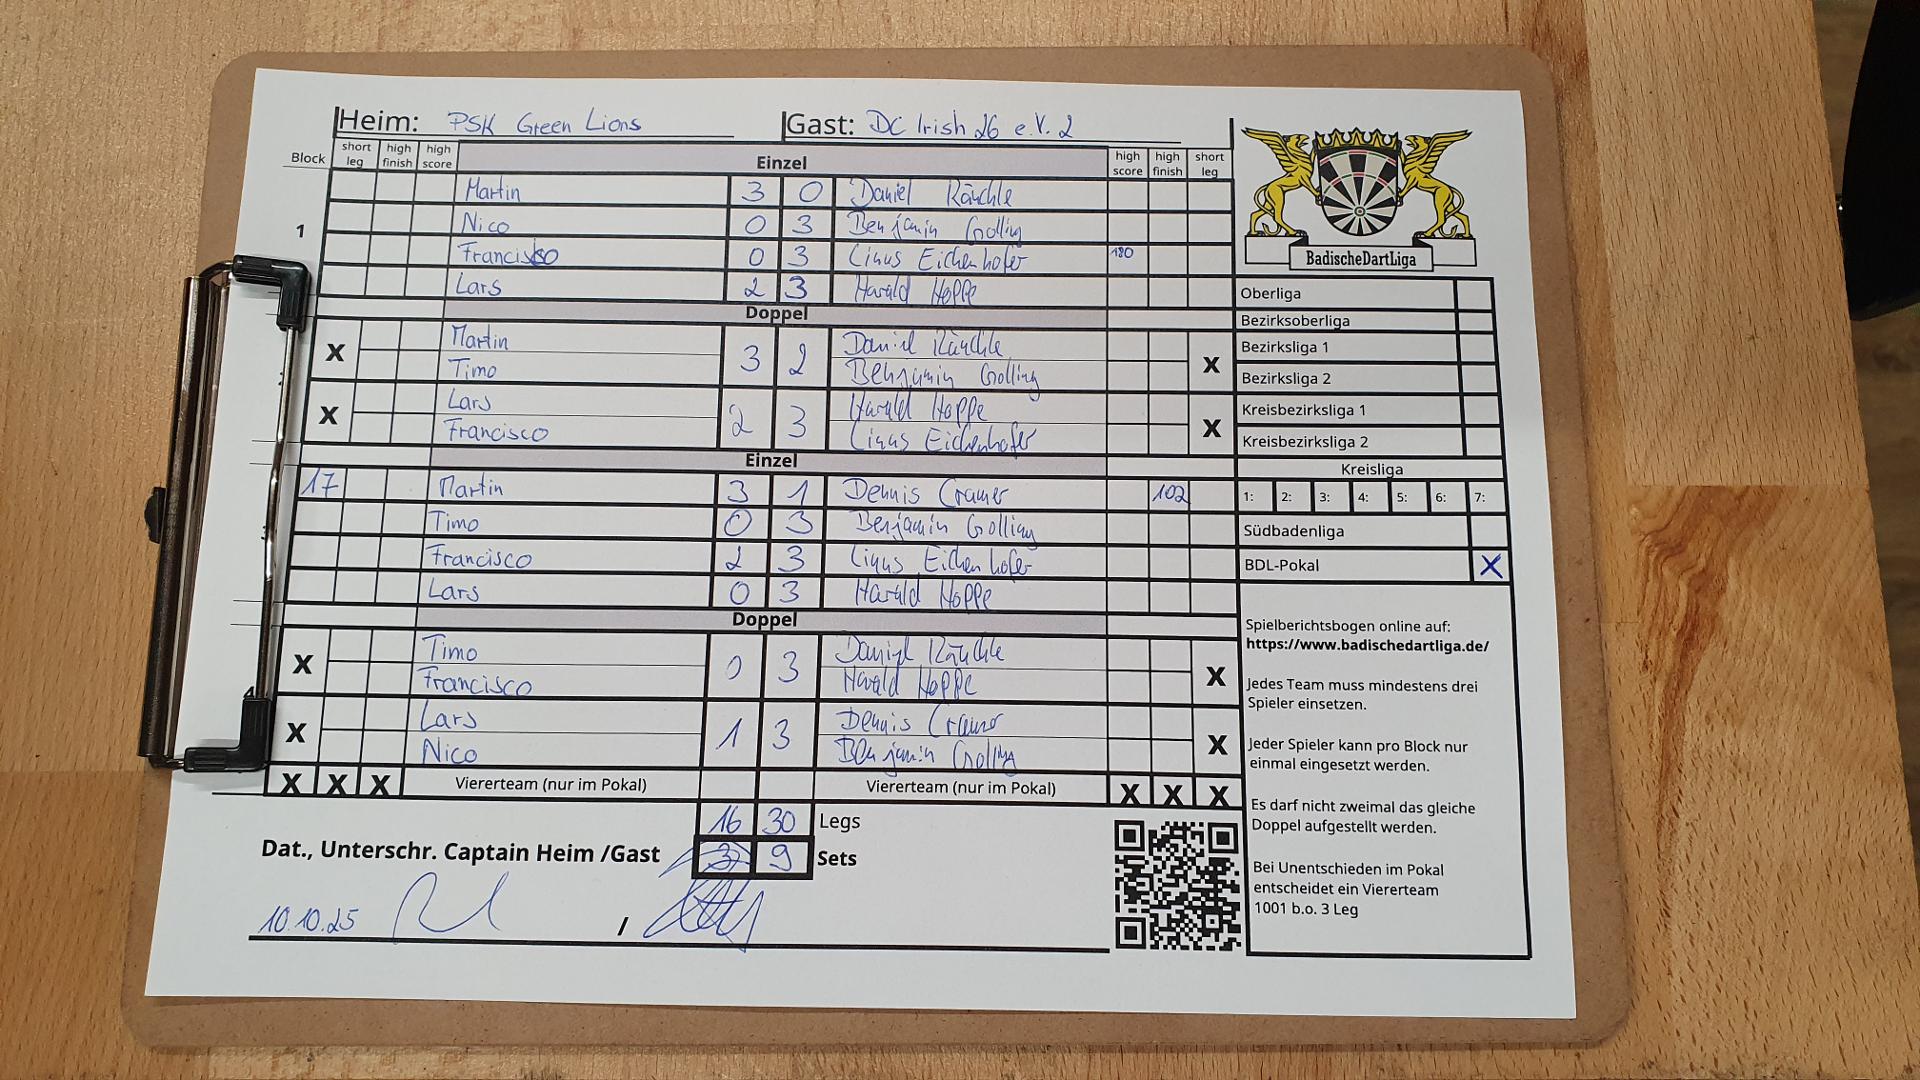 Heim: PSK Green Lions Gast: DC Irish 26 e.V. 2
Block short leg high finish high score Einzel high score high finish short leg
Martin 3 0 Daniel Räuchle
1 Nico 0 3 Benjamin Golling
Francisco 0 3 Linus Eichenhofer 180
Lars 2 3 Harald Hoppe
Doppel
X Martin 3 2 Daniel Räuchle X
Timo Benjamin Golling
X Lars 2 3 Harald Hoppe X
Francisco Linus Eichenhofer
Einzel
17 Martin 3 1 Dennis Cramer 102
Timo 0 3 Benjamin Golling
Francisco 2 3 Linus Eichenhofer
Lars 0 3 Harald Hoppe
Doppel
X Timo 0 3 Daniel Räuchle X
Francisco Harald Hoppe
X Lars 1 3 Dennis Cramer X
Nico Benjamin Golling
X X X Viererteam (nur im Pokal) Viererteam (nur im Pokal) X X X
16 30 Legs
Dat., Unterschr. Captain Heim /Gast 3 9 Sets
10.10.25 /
BadischeDartLiga
Oberliga
Bezirksoberliga
Bezirksliga 1
Bezirksliga 2
Kreisbezirksliga 1
Kreisbezirksliga 2
Kreisliga
1: 2: 3: 4: 5: 6: 7:
Südbadenliga
BDL-Pokal X
Spielberichtsbogen online auf:
https://www.badischedartliga.de/
Jedes Team muss mindestens drei
Spieler einsetzen.
Jeder Spieler kann pro Block nur
einmal eingesetzt werden.
Es darf nicht zweimal das gleiche
Doppel aufgestellt werden.
Bei Unentschieden im Pokal
entscheidet ein Viererteam
1001 b.o. 3 Leg